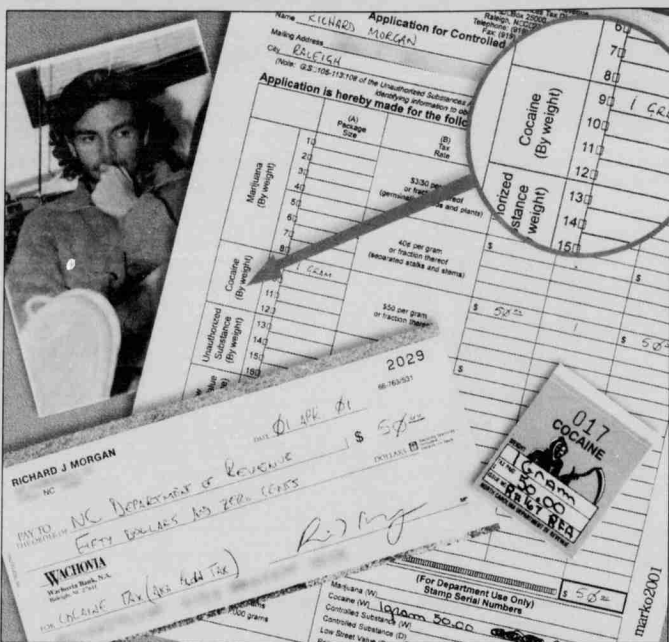 Name RICHARD MORGAN
Application for Controlled
Mailing Address
City RALEIGH
(Note: G.S. 105-113.108 of the Unauthorized Substances
identifying information to
Application is hereby made for the follo
(A)
Package
Size
(B)
Tax
Rate
Marijuana
(By weight)
1
2
3
4
5
6
7
8
$3.50 per
or fraction thereof
and plants)
40¢ per gram
or fraction thereof
(separated stalks and stems)
Cocaine
(By weight)
1 GRAM
11
12
$50 per gram
or fraction thereof
$ 50.00
$ 50
Unauthorized
Substance
(By weight)
13
14
15
16
6
7
8
9 1 GRA
10
11
12
13
14
15
Cocaine
(By weight)
orized
stance
weight)
2029
66-763/531
DATE 01 APR 01
RICHARD J MORGAN
NC
$ 50.00
PAY TO
THE ORDER OF NC DEPARTMENT OF REVENUE
FIFTY DOLLARS AND ZERO CENTS
DOLLARS
WACHOVIA
Wachovia Bank, N.A.
Raleigh, NC
FOR COCAINE TAX
017
COCAINE
1 Gram
50.00
NORTH CAROLINA DEPARTMENT OF REVENUE
$ 50.00
(For Department Use Only)
Stamp Serial Numbers
Marijuana (W)
Cocaine (W) 1gram 50.00
Controlled Substance (W)
Controlled Substance (D)
Low Street Value
grams
marko2001